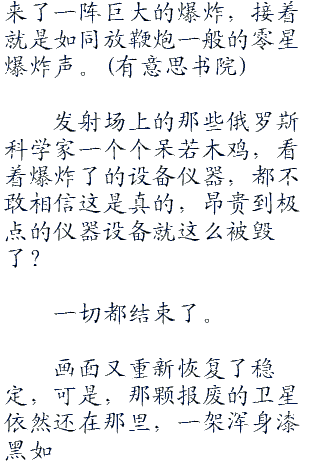 来了一阵巨大的爆炸，接着
就是如同放鞭炮一般的零星
爆炸声。(有意思书院)
发射场上的那些俄罗斯
科学家一个个呆若木鸡，看
着爆炸了的设备仪器，都不
敢相信这是真的，昂贵到极
点的仪器设备就这么被毁
了？
一切都结束了。
画面又重新恢复了稳
定，可是，那颗报废的卫星
依然还在那里，一架浑身漆
黑如